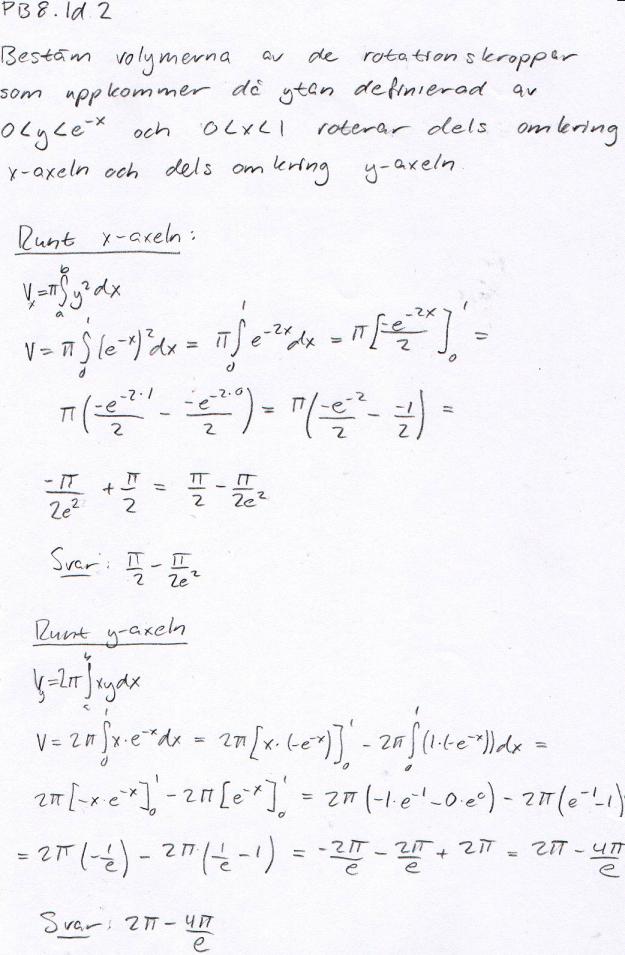 PB 8.1d 2
Bestäm volymerna av de rotationskroppar
som uppkommer då ytan definierad av
0<y<e^-x och 0<x<1 roterar dels omkring
x-axeln och dels omkring y-axeln.
Runt x-axeln:
V_x=π∫_a^b y² dx
V = π∫_0^1 (e^-x)² dx = π∫_0^1 e^-2x dx = π[-e^-2x/2]_0^1 =
π(-e^-2·1/2 - -e^-2·0/2) = π(-e^-2/2 - -1/2) =
-π/2e² + π/2 = π/2 - π/2e²
Svar: π/2 - π/2e²
Runt y-axeln
V_y=2π∫_a^b xy dx
V = 2π∫_0^1 x·e^-x dx = 2π[x·(-e^-x)]_0^1 - 2π∫_0^1 (1·(-e^-x))dx =
2π[-x·e^-x]_0^1 - 2π[e^-x]_0^1 = 2π(-1·e^-1 - 0·e^0) - 2π(e^-1 - 1)
= 2π(-1/e) - 2π·(1/e - 1) = -2π/e - 2π/e + 2π = 2π - 4π/e
Svar: 2π - 4π/e